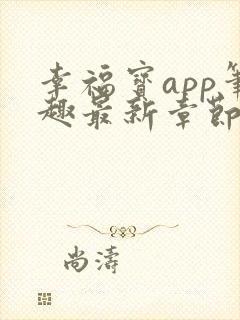 幸福宝app笔
趣最新章节
尚涛